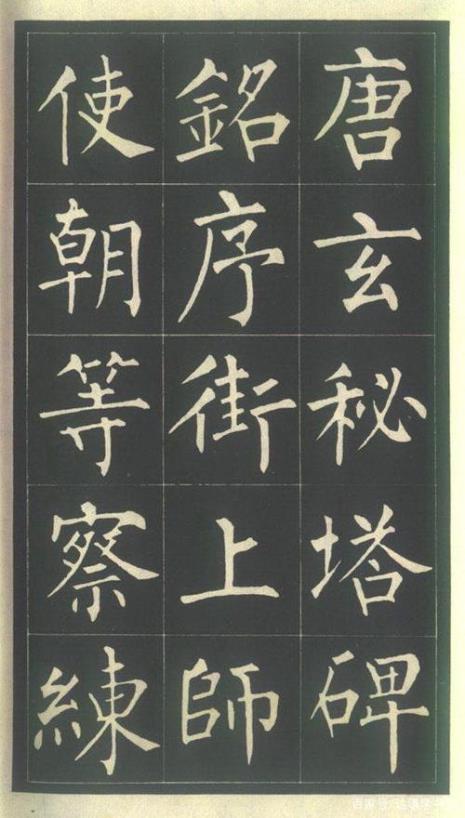 唐玄秘塔碑
銘序街上師
使朝等察練